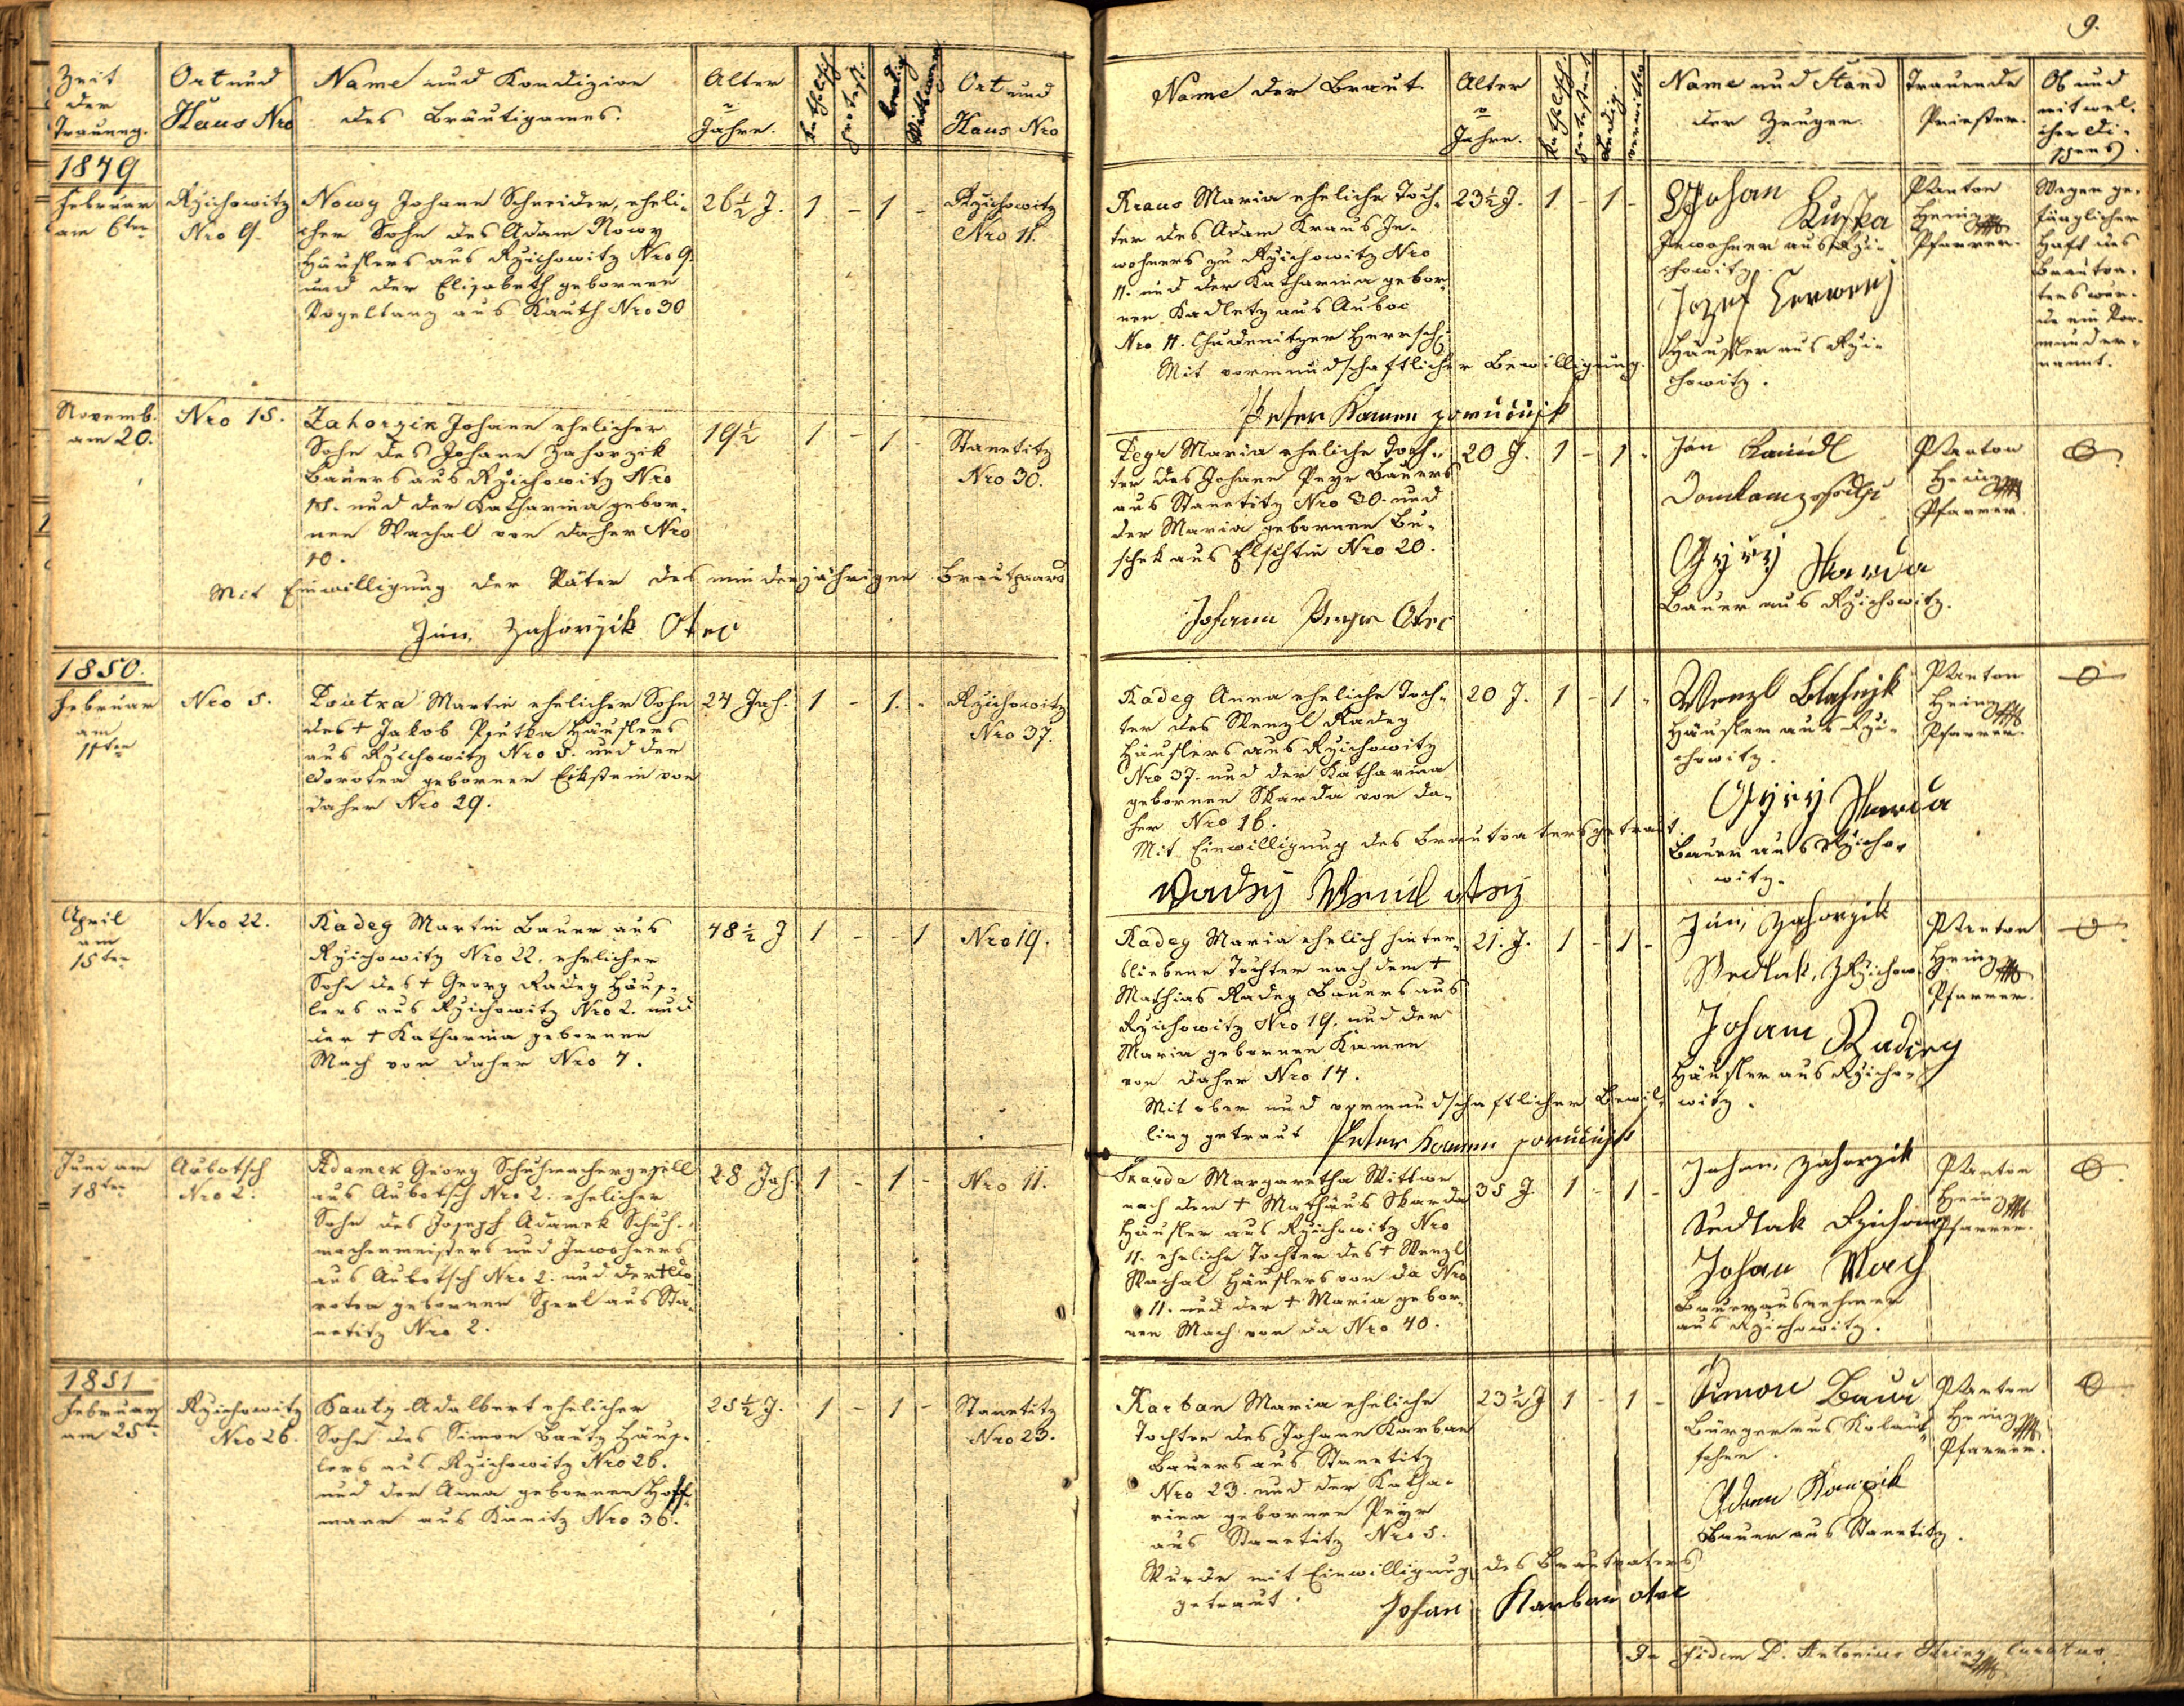 9.
Zeit
der
Trauung.
Ort und
Haus Nro
Name und Kondizion
des Bräutigames.
Alter
Jahre.
Katholisch
protest.
ledig
Wittwer
Ort und
Haus Nro
Name der Braut.
Alter
Jahre.
Katholisch
protestant
ledig.
verwittw
Name und Stand
der Zeugen.
Trauende
Priester.
Ob und
mit wel-
cher Di-
spens.
1849
Februar
am 6ten
Rzichowitz
Nro 9.
Nowy Johann Schneider, eheli-
cher Sohn des Adam Nowy
Häuslers aus Rzichowitz Nro 9.
und der Elisabeth gebornen
Vogeltanz aus Kauth Nro 30
26½ J.
1
-
1
-
Rzichowitz
Nro 11.
Kraus Maria eheliche Toch-
ter des Adam Kraus In-
wohners zu Rzichowitz Nro
11. und der Katharina gebor-
nen Kadletz aus Auboc
Nro 11. Chudenitzer Herrsch.
Mit vormundschaftlicher Bewilligung.
Peter Kamen poručnjk
23½ J.
1
-
1
-
Johan
Kuska
Inwohner aus Rzi-
chowitz.
Jozef Czerwenj
Häusler aus Rzi-
chowitz.
P Anton
Heinz
Pfarrer.
Wegen ge-
fänglicher
Haft des
Brautva-
ters wur-
de ein Vor-
mund er-
nannt.
Novemb.
am 20.
Nro 15.
Zahorzik Johann ehelicher
Sohn des Johann Zahorzik
Bauers aus Rzichowitz Nro
15. und der Katharina gebor-
nen Wachal von daher Nro
10.
Mit Einwilligung der Väter des minderjährigen Brautpaars
Jan Zahorzik Otec
19½
1
-
1
-
Stanetitz
Nro 30.
Pegr Maria eheliche Toch-
ter des Johann Pegr Bauers
aus Stanetitz Nro 30. und
der Maria gebornen Bu-
schek aus Elschtin Nro 20.
Johann Pegr Otec
20 J.
1
-
1
-
Jan
Girzj Skarda
Bauer aus Rzichowitz.
P Anton
Heinz
Pfarrer.
0
1850.
Februar
am
11ten
Nro 5.
Poutka Martin ehelicher Sohn
des † Jakob Poutka Häuslers
aus Rzichowitz Nro 5. und der
Dorotea gebornen Eckstein von
daher Nro 29.
24 Jah.
1
-
1.
-
Rzichowitz
Nro 37.
Radeg Anna eheliche Toch-
ter des Wenzl Radeg
Häuslers aus Rzichowitz
Nro 37. und der Katharina
gebornen Skarda von da-
her Nro 16.
Mit Einwilligung des Brautvaters getraut.
Wencl otec
20 J.
1
-
1
-
Wenzl Blahnjk
Häusler aus Rzi-
chowitz.
Girzj Skarda
Bauer aus Rzicho-
witz.
P Anton
Heinz
Pfarrer.
0
April
am
15ten
Nro 22.
Radeg Martin Bauer aus
Rzichowitz Nro 22. ehelicher
Sohn des † Georg Radeg Häus-
lers aus Rzichowitz Nro 2. und
der † Katharina gebornen
Mach von daher Nro 7.
48½ J
1
-
-
1
Nro 19.
Radeg Maria ehelich hinter-
bliebene Tochter nach dem †
Mathias Radeg Bauers aus
Rzichowitz Nro 19. und der
Maria gebornen Kamen
von daher Nro 14.
Mit ober und vormundschaftlicher Bewil-
ling getraut Peter Kamen poručnjk
21. J.
1
-
1
-
Jan Zahorzik
Sedlak z Rzichow.
Johann Radeg
Häusler aus Rzicho-
witz.
P Anton
Heinz
Pfarrer.
0
Juni am
18ten
Aubotsch
Nro 2.
Adamek Georg Schuhmachergesell
aus Aubotsch Nro 2. ehelicher
Sohn des Joseph Adamek Schuh-
machermeisters und Inwohners
aus Aubotsch Nro 2. und der † Do-
rotea gebornen Sperl aus Sta-
netitz Nro 2.
28 Jah.
1
-
1
-
Nro 11.
Skarda Margaretha Wittwe
nach dem † Mathäus Skarda
Häusler aus Rzichowitz Nro
11. eheliche Tochter des † Wenzl
Wachal Häuslers von da Nro
11. und der † Maria gebor-
nen Mach von da Nro 40.
35 J.
1
-
1
-
Johan Zahorzik
Sedlak Rzichow
Johan Mach
Bauerausnehmer
aus Rzichowitz.
P Anton
Heinz
Pfarrer.
0
1851
Februar
am 25ten
Rzichowitz
Nro 26.
Bautz Adalbert ehelicher
Sohn des Simon Bautz Häus-
lers aus Rzichowitz Nro 26.
und der Anna gebornen Hoff-
mann aus Kanitz Nro 36.
25½ J.
1
-
1
-
Stanetitz
Nro 23.
Karban Maria eheliche
Tochter des Johann Karban
Bauers aus Stanetitz
Nro 23. und der Katha-
rina gebornen Pegr
aus Stanetitz Nro 5.
Wurde mit Einwilligung des Brautvaters
getraut.
Johan Karban otec
23½ J
1
-
1
-
Simon Bauc
Bürger aus Kolaut-
schen.
Adam Konopik
Bauer aus Stanetitz.
P Anton
Heinz
Pfarrer.
0
In fidem P. Antonius Heinz Curatus